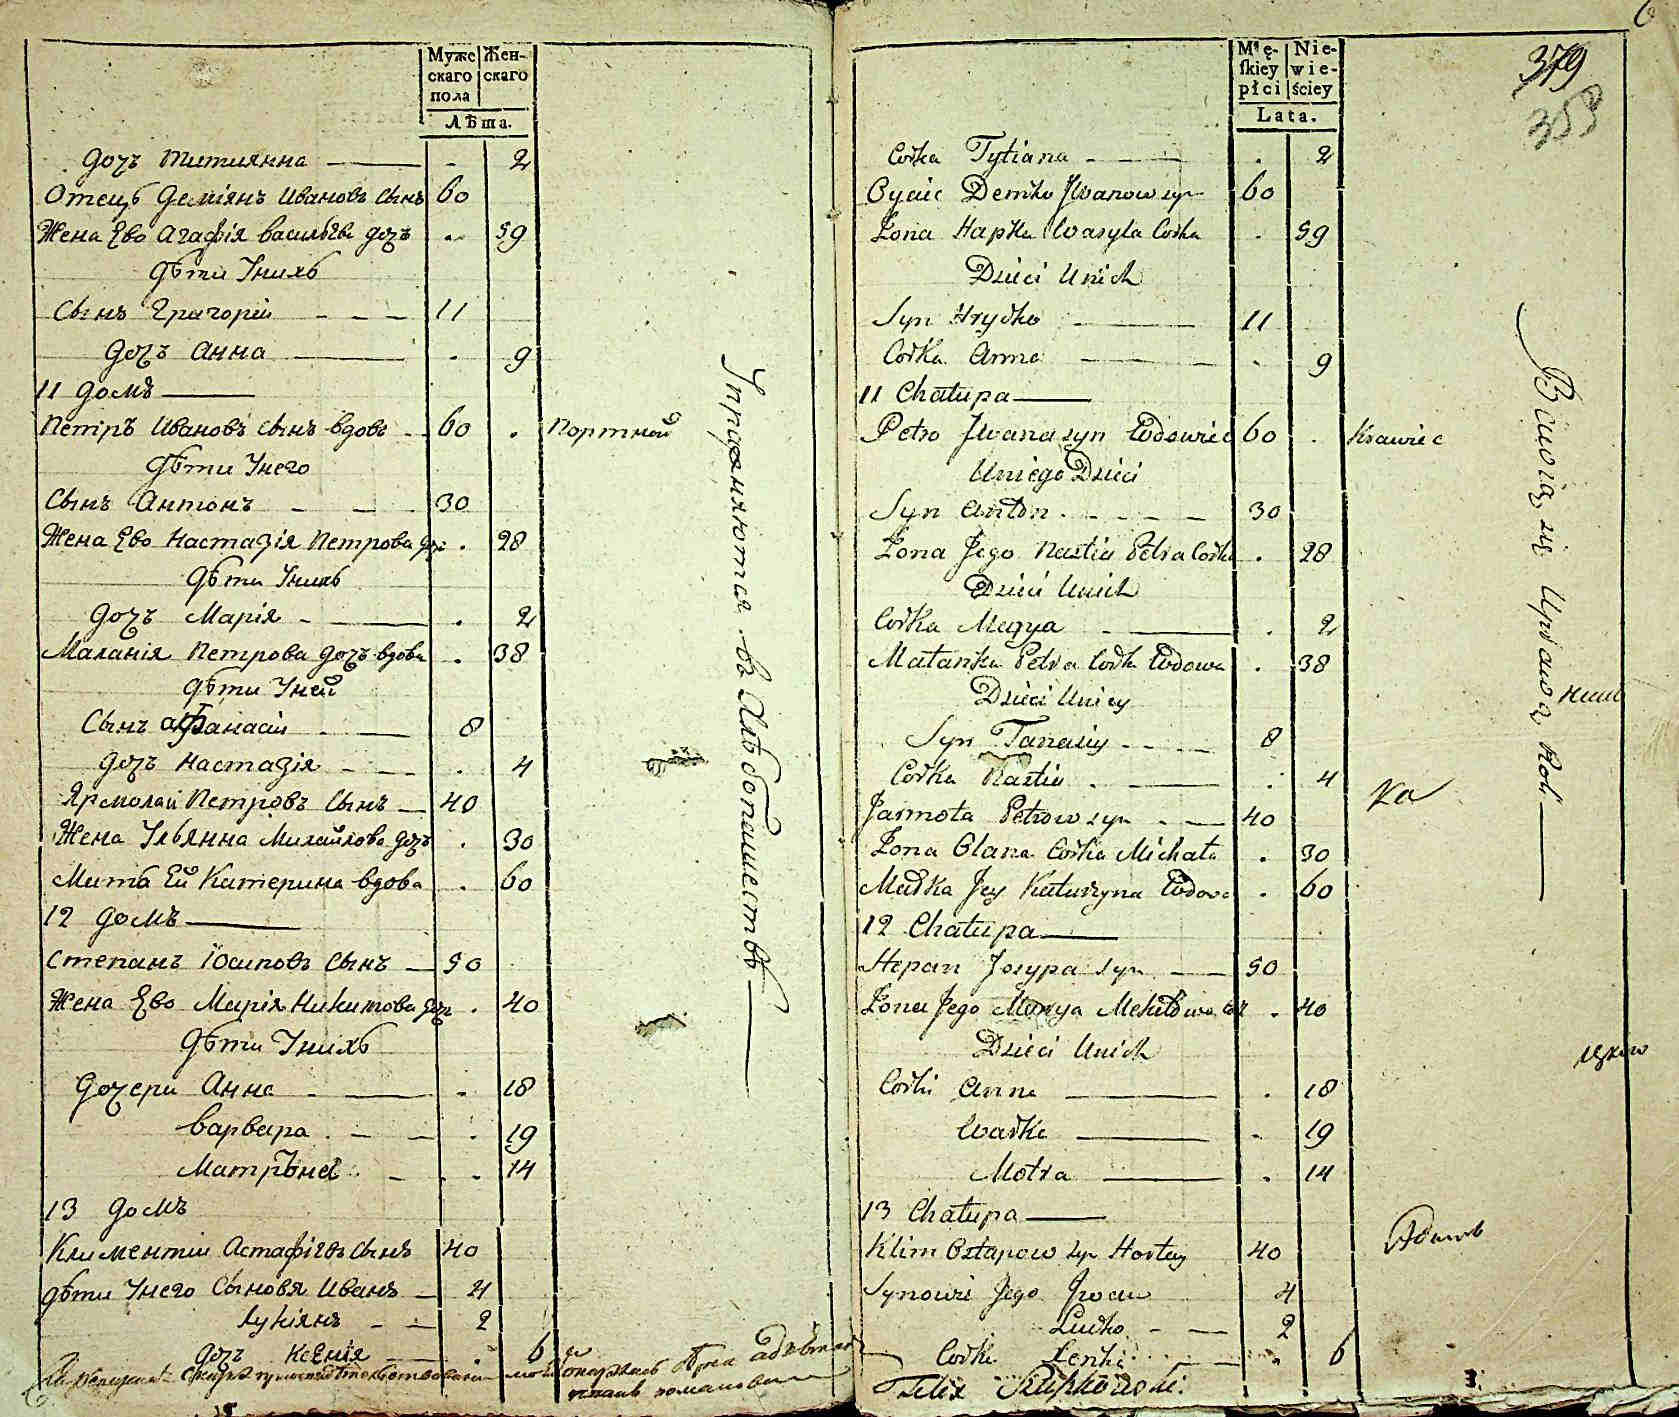 Мужескаго пола
Женскаго
Лѣта.
дочь Титиянна — - 2
Отецъ Демiянъ Ивановъ сынъ 60
Жена Ево Агафiя васильева дочь - 59
дѣти Унихъ
Сынъ Григорiй - - - 11
дочь Анна — . 9
11 домъ —
Петръ Ивановъ сынъ вдовъ - 60 . Портной
дѣти Унего
Сынъ Антонъ - - 30
Жена Ево Настазiя Петрова дочь . 28
дѣти Унихъ
дочь Марiя - — . 2
Маланiя Петрова дочь вдова . 38
дѣти Уней
Сынъ афанасiй - — 8
дочь Настазiя - - - . 4
Ярмолай Петровъ Сынъ — 40
Жена Ульянна Михайлова дочь . 30
Мать Ей Катерина вдова . 60
12 домъ —
Степанъ Иосиповъ сынъ — 50
Жена Ево Марiя Никитова дочь . 40
дѣти Унихъ
дочери Анна - — - 18
варвара . - - . 19
Матрона - . - 14
13 домъ
Климентiй Астафiевъ сынъ 40
дѣти Унего Сыновя Иванъ — 4
Лукiянъ - — 2
дочь Ксенiя — . 6
Упражняются въ Хлѣбопашествѣ —
Męskiey płci
Niewieściey
Lata.
6
379
358
Corka Tytiana - — . 2
Oyciec Demko Jwanow syn 60
Żona Hapka Wasyla Corka . 59
Dzieci Unich
Syn Hryćko — 11
Corka Anna — - 9
11 Chałupa —
Petro Jwana syn Wdowiec 60 . Krawiec
Uniego Dzieci
Syn Anton - - - - 30
Żona Jego Nastia Petra Corka . 28
Dzieci Unich
Corka Marya - — . 2
Małanka Petra Corka Wdowa . 38
Dzieci Uniey
Syn Tanasiy - - - 8
Corka Nastia . — . 4
Jarmoła Petrow syn - — 40
Żona Olana Corka Michała . 30
Matka Jey Katarzyna Wdowa - 60
12 Chałupa —
Stepan Josypa syn — 50
Żona Jego Marya Mekitowa Cor . 40
Dzieci Unich
Corki Anna — . 18
Warka — - 19
Motra — . 14
13 Chałupa —
Klim Ostapow syn 40
Synowie Jego Jwan 4
Lucko - — 2
Corka — . 6
Bawią się Uprawą Roli —
ка
Felix